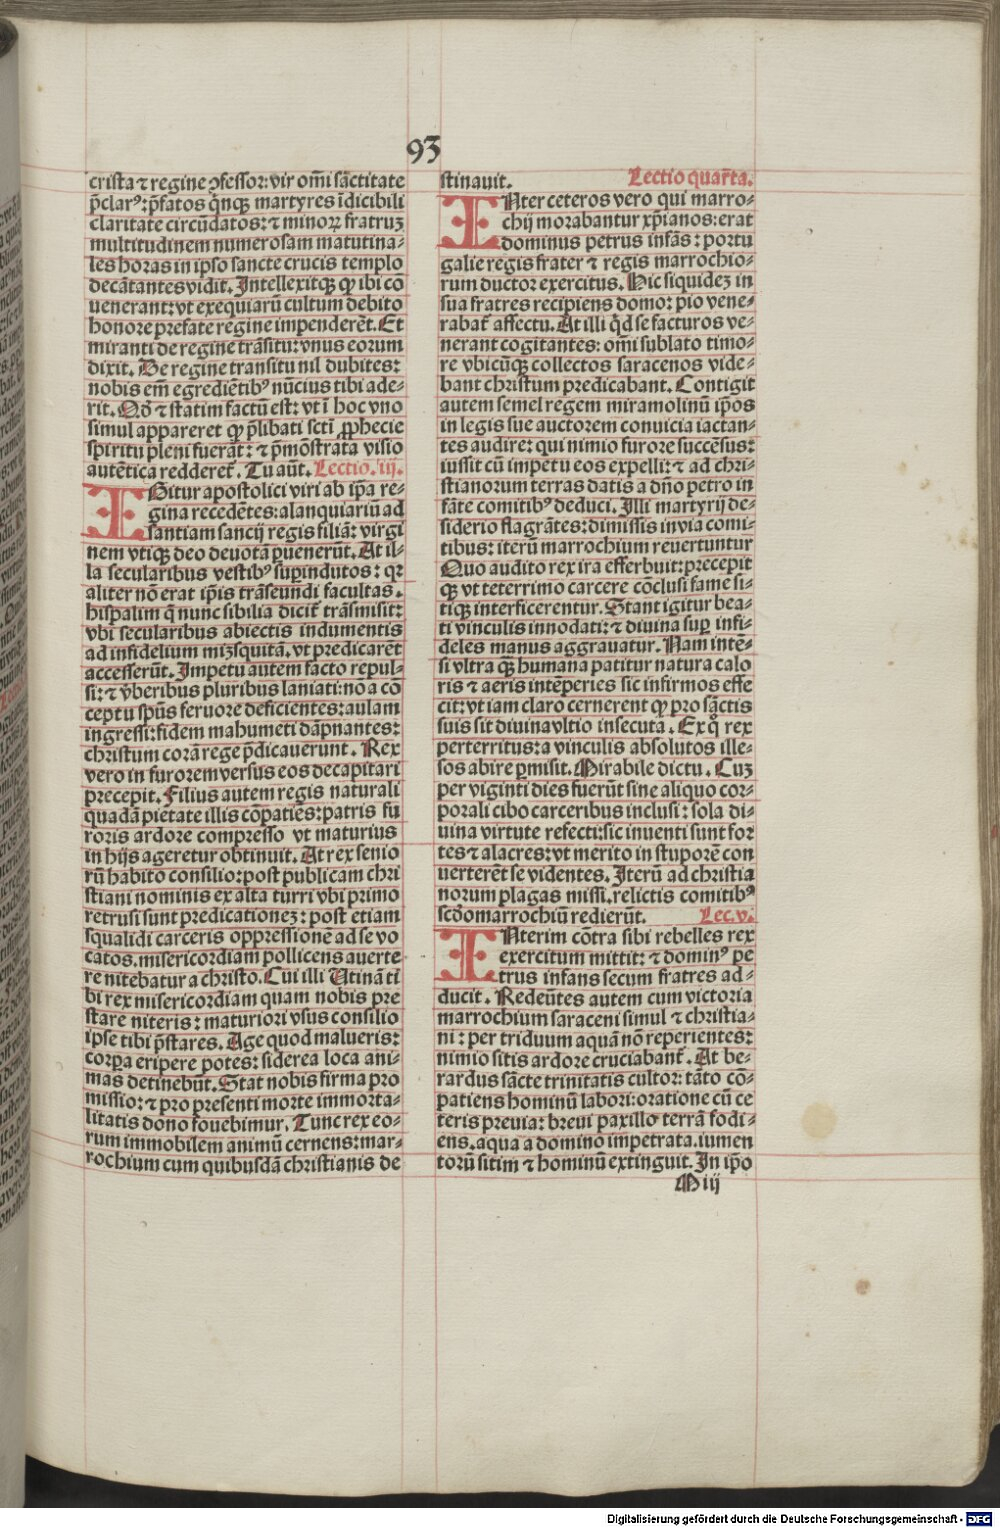 93
crista ⁊ regine ꝯfessor: vir om̄i sāctitate
p̄clarꝰ: p̄fatos q̄nqꝫ martyres īdicibili
claritate circūdatos: ⁊ minoꝝ fratruꝫ
multitudinem numerosam matutina-
les horas in ipso sancte crucis templo
decātantes vidit. Intellexitqꝫ ꝙ ibi cō
uenerant: vt exequiarū cultum debito
honore prefate regine impenderēt. Et
miranti de regine trāsitu: vnus eorum
dixit. De regine transitu nil dubites:
nobis em̄ egrediētibꝰ nūcius tibi ade-
rit. Qđ ⁊ statim factū est: vt ī hoc vno
simul appareret ꝙ p̄libati sc̄ti ꝓphecie
spiritu pleni fuerāt: ⁊ p̄mōstrata visio
autētica redderet̄. Tu aūt. Lectio. iij.
IGitur apostolici viri ab ip̄a re-
gina recedētes: alanquiariū ad
santiam sancij regis filiā: virgi
nem vtiqꝫ deo deuotā ꝑuenerūt. At il-
la secularibus vestibꝰ suꝑindutos: qꝛ
aliter nō erat ip̄is trāseundi facultas.
hispalim q̄ nunc sibilia dicit̄ trāsmisit:
vbi secularibus abiectis indumentis
ad infidelium mizsquitā. vt predicarēt
accesserūt. Impetu autem facto repul-
si: ⁊ v̄beribus pluribus laniati: nō a cō
ceptu sp̄us feruore deficientes: aulam
ingressi: fidem mahumeti dāpnantes:
christum corā rege p̄dicauerunt. Rex
vero in furorem versus eos decapitari
precepit. Filius autem regis naturali
quadā pietate illis cōpatiēs: patris fu
roris ardore compresso vt maturius
in hijs ageretur obtinuit. At rex senio
rū habito consilio: post publicam chri
stiani nominis ex alta turri vbi primo
retrusi sunt predicationeꝫ: post etiam
squalidi carceris oppressionē ad se vo
catos. misericordiam pollicens auerte
re nitebatur a christo. Cui illi Utinā ti
bi rex misericordiam quam nobis pre
stare niteris: maturiori vsus consilio
ipse tibi p̄stares. Age quod malueris:
corꝑa eripere potes: siderea loca ani-
mas detinebūt. Stat nobis firma pro
missio: ⁊ pro presenti morte immorta-
litatis dono fouebimur. Tunc rex eo-
rum immobilem animū cernens: mar-
rochium cum quibusdā christianis de
stinauit. Lectio quar̄ta.
INter ceteros vero qui marro-
chij morabantur xp̄ianos: erat
dominus petrus infās: portu
galie regis frater ⁊ regis marrochio-
rum ductor exercitus. Hic siquideꝫ in
sua fratres recipiens domo: pio vene-
rabat̄ affectu. At illi q̄d se facturos ve-
nerant cogitantes: om̄i sublato timo-
re vbicūqꝫ collectos saracenos vide-
bant christum predicabant. Contigit
autem semel regem miramolinū ip̄os
in legis sue auctorem conuicia iactan-
tes audire: qui nimio furore succēsus:
iussit cū impetu eos expelli: ⁊ ad chri-
stianorum terras datis a dn̄o petro in
fāte comitibꝰ deduci. Illi martyrij de-
siderio flagrātes: dimissis in via comi-
tibus: iterū marrochium reuertuntur
Quo audito rex ira efferbuit: precepit
qꝫ vt teterrimo carcere cōclusi fame si-
tiqꝫ interficerentur. Stant igitur bea-
ti vinculis innodati: ⁊ diuina suꝑ infi-
deles manus aggrauatur. Nam intē-
si vltra qꝫ humana patitur natura calo
ris ⁊ aeris intēperies sic infirmos effe
cit: vt iam claro cernerent ꝙ pro sāctis
suis sit diuina vltio insecuta. Ex q̊ rex
perterritus: a vinculis absolutos ille-
sos abire ꝑmisit. Mirabile dictu. Cuꝫ
per viginti dies fuerūt sine aliquo cor-
porali cibo carceribus inclusi: sola di-
uina virtute refecti: sic inuenti sunt for
tes ⁊ alacres: vt merito in stuporē con
uerterēt se videntes. Iterū ad christia
norum plagas missi. relictis comitibꝰ
scđo marrochiū redierūt. Lec. v.
INterim cōtra sibi rebelles rex
exercitum mittit: ⁊ dominꝰ pe
trus infans secum fratres ad-
ducit. Redeūtes autem cum victoria
marrochium saraceni simul ⁊ christia-
ni: per triduum aquā nō reperientes:
nimio sitis ardore cruciabant̄. At be-
rardus sācte trinitatis cultor: tāto cō-
patiens hominū labori: oratione cū ce
teris preuia: breui paxillo terrā fodi-
ens. aqua a domino impetrata. iumen
torū sitim ⁊ hominū extinguit. In ip̄o
M iij
Digitalisierung gefördert durch die Deutsche Forschungsgemeinschaft - DFG